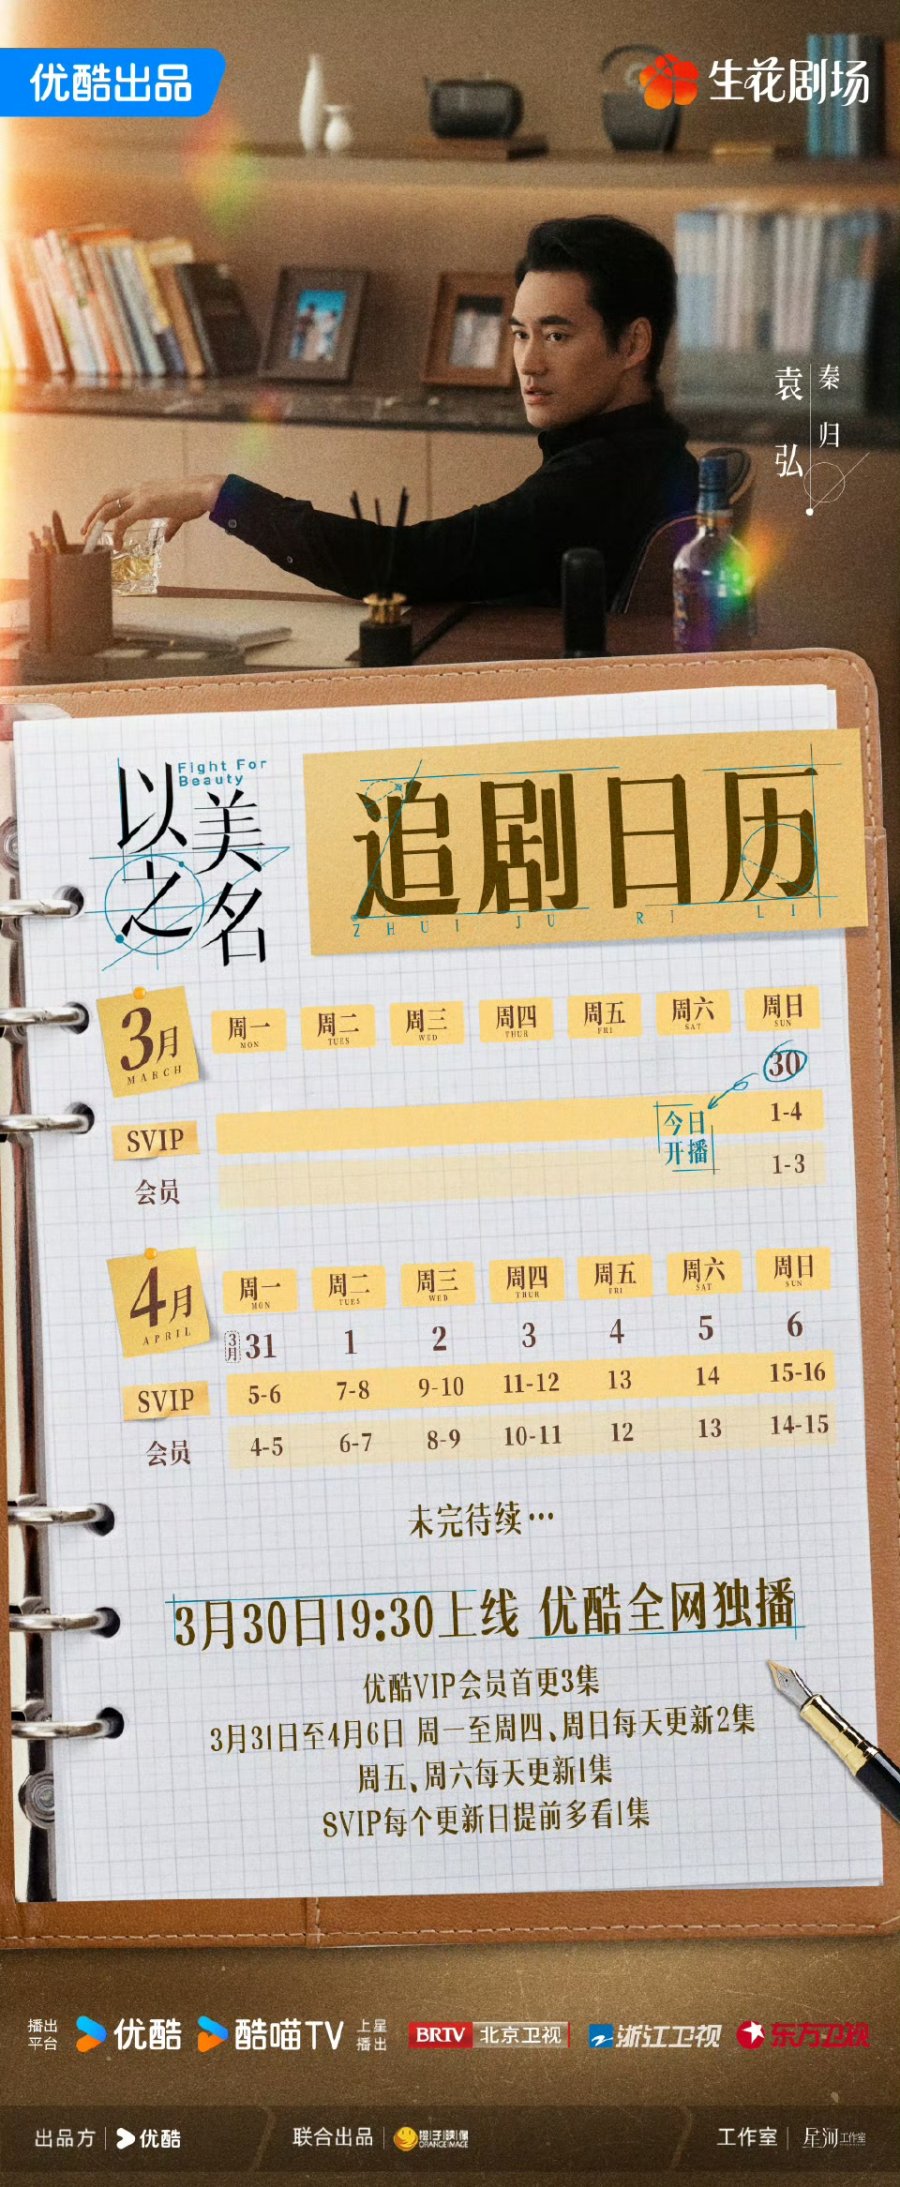 优酷出品
生花剧场
秦归
袁弘
以美之名
Fight For
Beauty
追剧日历
ZHUI JU RI LI
3月
MARCH
周一 周二 周三 周四 周五 周六 周日
MON TUES WED THUR FRI SAT SUN
30
今日
开播
SVIP 1-4
会员 1-3
4月
APRIL
周一 周二 周三 周四 周五 周六 周日
MON TUES WED THUR FRI SAT SUN
3月 31 1 2 3 4 5 6
SVIP 5-6 7-8 9-10 11-12 13 14 15-16
会员 4-5 6-7 8-9 10-11 12 13 14-15
未完待续…
3月30日19:30上线 优酷全网独播
优酷VIP会员首更3集
3月31日至4月6日 周一至周四、周日每天更新2集
周五、周六每天更新1集
SVIP每个更新日提前多看1集
播出
平台
优酷 酷喵TV
上星
播出
BRTV 北京卫视 浙江卫视 东方卫视
出品方 优酷 联合出品 橙子映像 ORANGE IMAGE 工作室 星河工作室